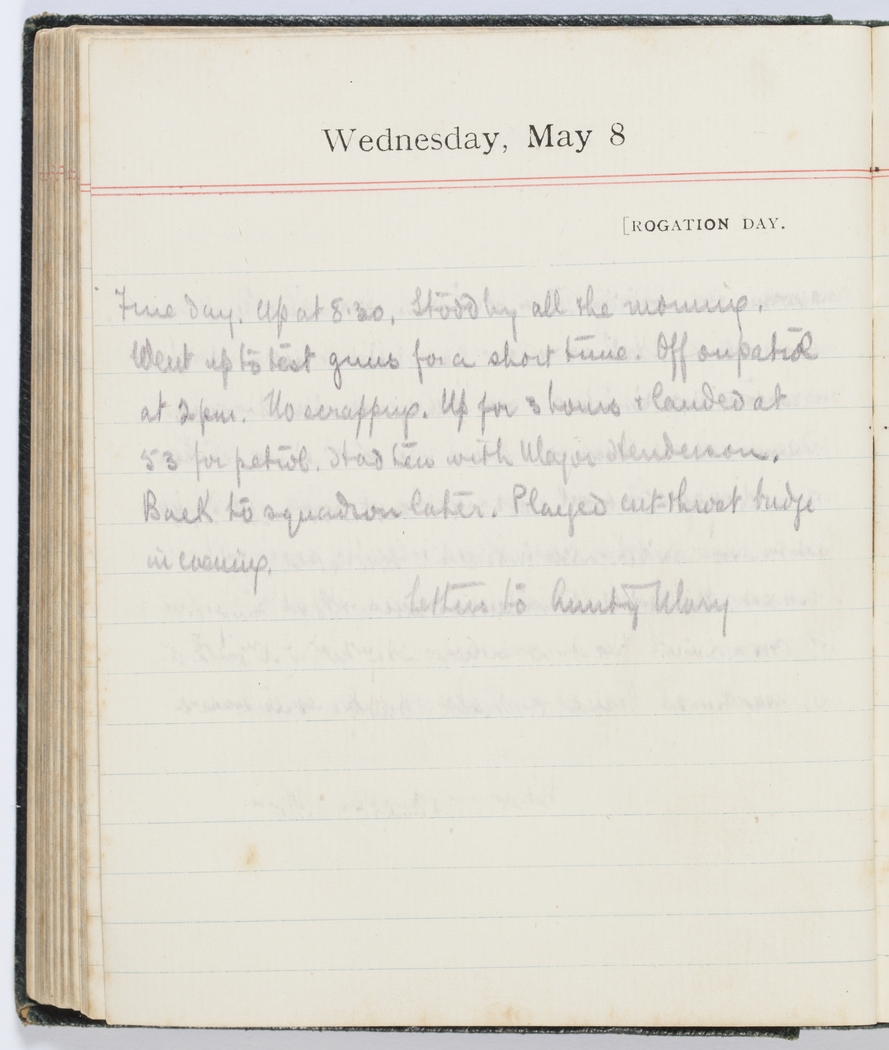 Wednesday, May 8
[ROGATION DAY.
Fine day. Up at 8.30. Stood by all the morning.
Went up to test guns for a short time. Off on patrol
at 2 pm. No scrapping. Up for 3 hours & landed at
53 for petrol. Had tea with Major Henderson.
Back to squadron later. Played cut-throat bridge
in evening.
Letters to Aunty Mary